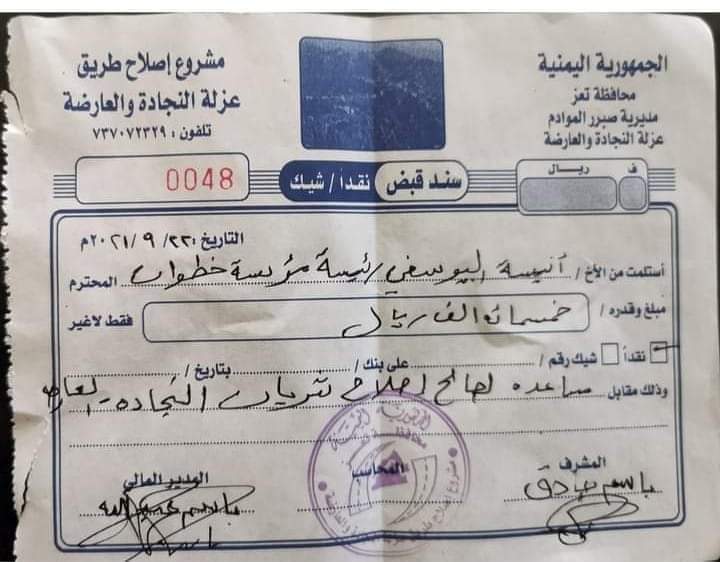 الجمهورية اليمنية
محافظة تعز
مديرية صبر الموادم
عزلة النجادة والعارضة
مشروع إصلاح طريق
عزلة النجادة والعارضة
تلفون : ٧٣٧٠٧٢٣٢٩
ف ريال
سند قبض نقداً / شيك
0048
التاريخ : ٢٣ / ٩ / ٢٠٢١م
أستلمت من الأخ / أنيسة اليوسفي رئيسة مؤسسة خطوات المحترم
مبلغ وقدره / خمسمائة الف ريال فقط لاغير
نقداً شيك رقم / على بنك / بتاريخ /
وذلك مقابل مساعده لصالح اصلاح النجاده
المشرف
المحاسب
المدير المالي
باسم صادق
باسم عبدالله